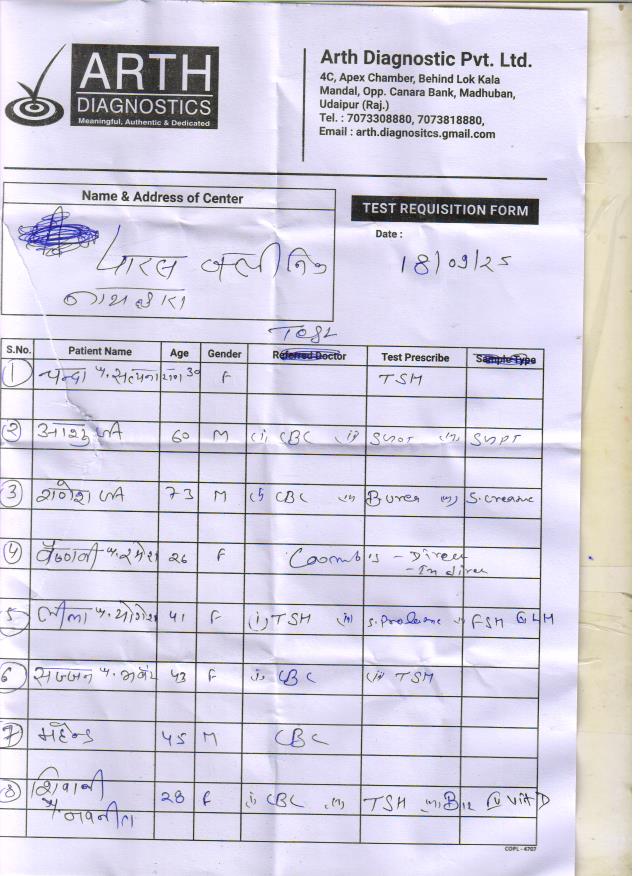 ARTH
DIAGNOSTICS
Meaningful, Authentic & Dedicated
Arth Diagnostic Pvt. Ltd.
4C, Apex Chamber, Behind Lok Kala
Mandal, Opp. Canara Bank, Madhuban,
Udaipur (Raj.)
Tel. : 7073308880, 7073818880,
Email : arth.diagnositcs.gmail.com
Name & Address of Center
TEST REQUISITION FORM
Date :
18/09/25
पारस क्लीनिक
S.No. Patient Name Age Gender Referred Doctor Test Prescribe Sample Type
1 30 F TSM
2 60 M (i) CBC (ii) SGOT (iii) SGPT
3 गणेश 73 M (i) CBC (ii) B.urea (iii)
4 वैष्णवी प. रमेश 26 F Coombs - Direct
- Indirec
5 लीला प. योगेश 41 F (i) TSM (ii) FSM
6 सज्जन प. 43 F (i) CBC (ii) TSM
7 महेन्द्र 45 M CBC
8 शिवानी 28 F (i) CBC (ii) TSM (iii) B12 (iv) Vit D
नवनीत
COPL - 4707